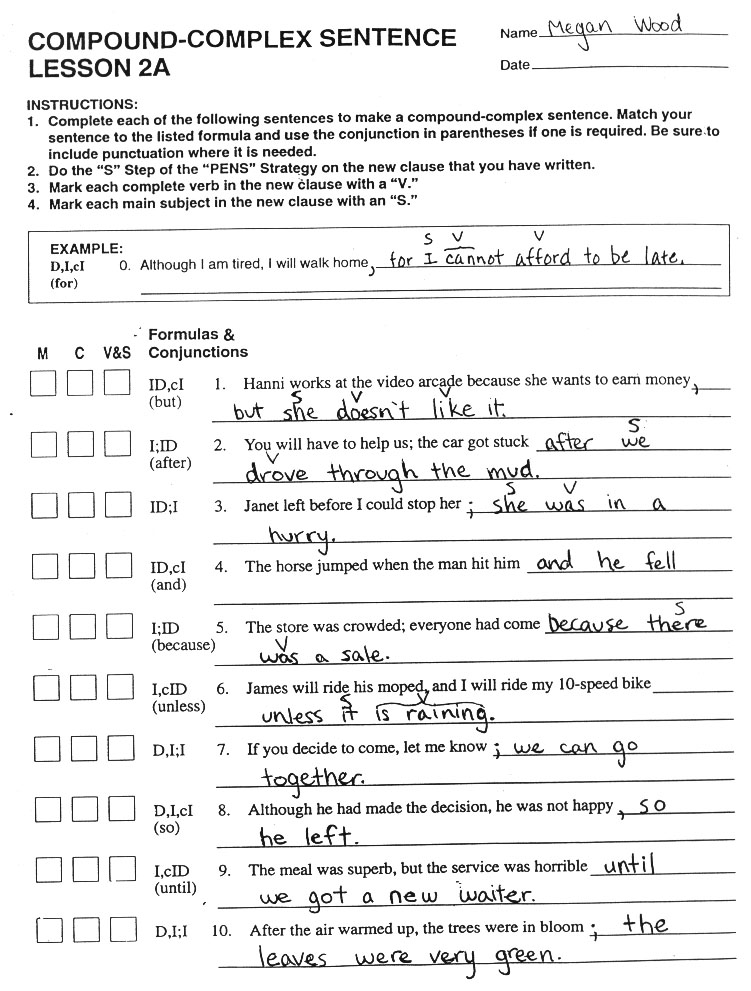 COMPOUND-COMPLEX SENTENCE
LESSON 2A
Name Megan Wood
Date
INSTRUCTIONS:
1. Complete each of the following sentences to make a compound-complex sentence. Match your
sentence to the listed formula and use the conjunction in parentheses if one is required. Be sure to
include punctuation where it is needed.
2. Do the “S” Step of the “PENS” Strategy on the new clause that you have written.
3. Mark each complete verb in the new clause with a “V.”
4. Mark each main subject in the new clause with an “S.”
S V V
EXAMPLE:
D,I,cI 0. Although I am tired, I will walk home, for I cannot afford to be late.
(for)
Formulas &
M C V&S Conjunctions
ID,cI 1. Hanni works at the video arcade because she wants to earn money,
S V V
(but) but she doesn't like it.
S
I;ID 2. You will have to help us; the car got stuck after we
V
(after) drove through the mud.
S V
ID;I 3. Janet left before I could stop her ; she was in a
hurry.
ID,cI 4. The horse jumped when the man hit him and he fell
(and)
S
I;ID 5. The store was crowded; everyone had come because there
V
(because) was a sale.
I,cID 6. James will ride his moped, and I will ride my 10-speed bike
S V
(unless) unless it is raining.
D,I;I 7. If you decide to come, let me know ; we can go
together.
D,I,cI 8. Although he had made the decision, he was not happy , so
(so) he left.
I,cID 9. The meal was superb, but the service was horrible until
(until) we got a new waiter.
D,I;I 10. After the air warmed up, the trees were in bloom ; the
leaves were very green.